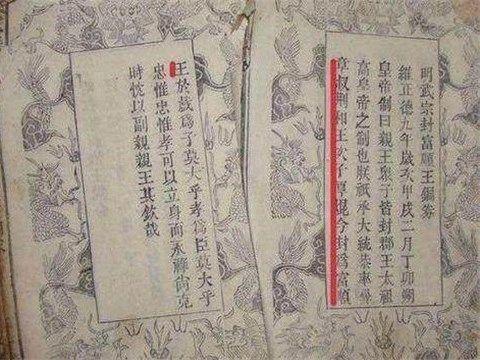 明武宗封富順王
維正德九年歲次甲戌二月丁卯朔
皇帝制曰親王衆子皆封郡王太祖
高皇帝之制也朕祇承大統率
章叔荆和王次子厚焜今封爲富順
王於戲爲子莫大乎孝爲臣莫大乎
忠惟忠惟孝可以立身而永祿尚克
時忱以副親親王其欽哉